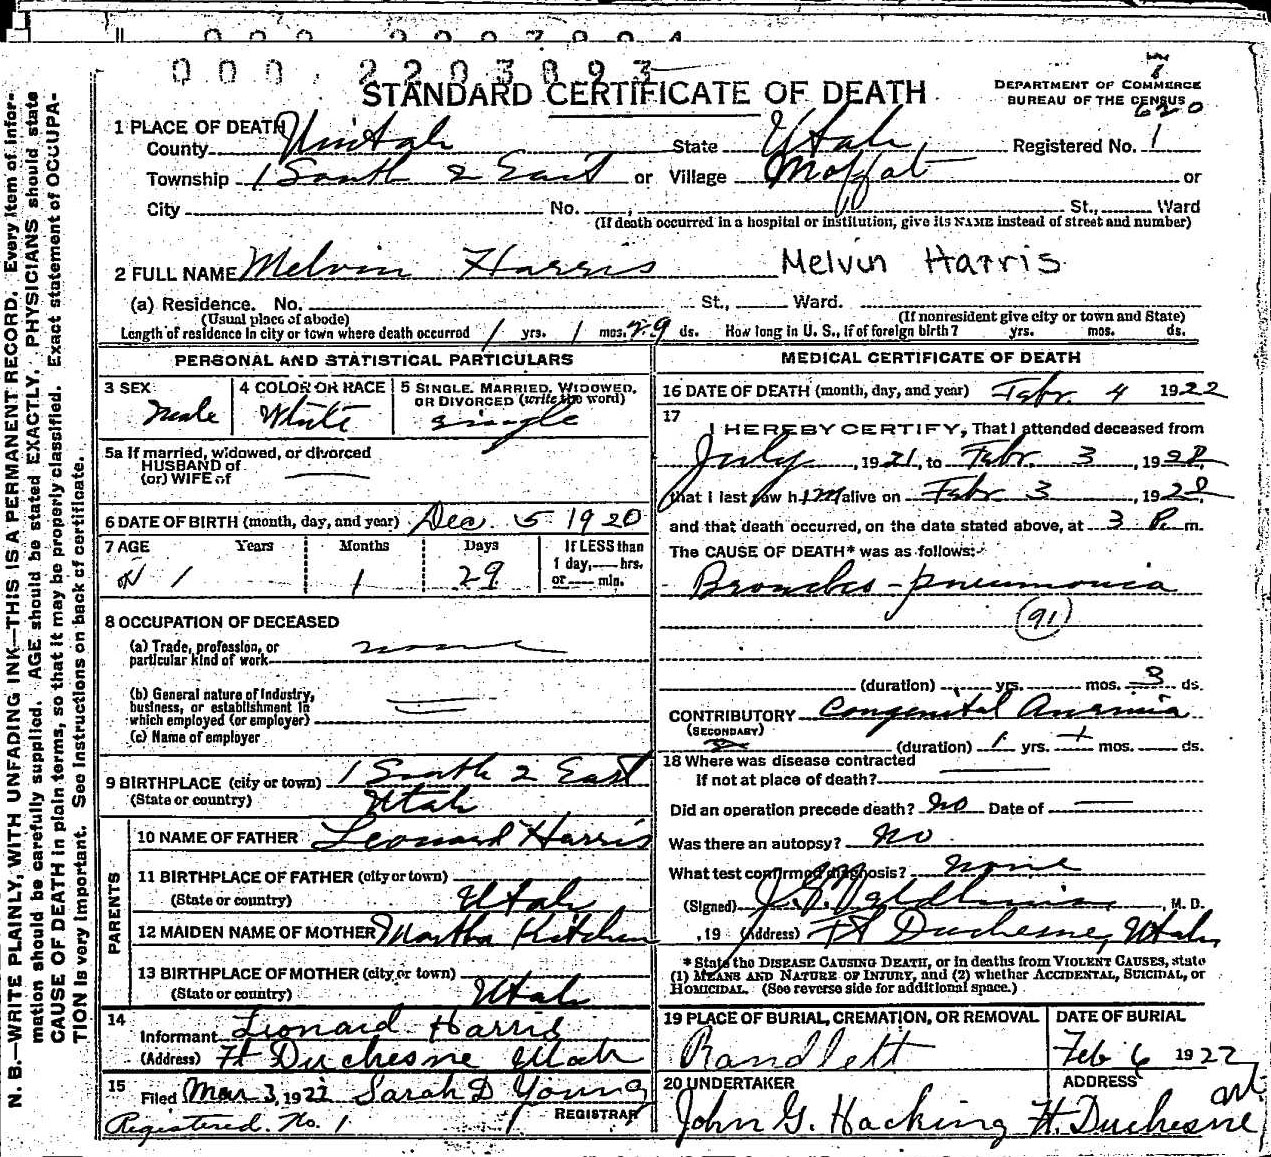 000 2203893
STANDARD CERTIFICATE OF DEATH
DEPARTMENT OF COMMERCE
BUREAU OF THE CENSUS
620
1 PLACE OF DEATH
County Uintah State Utah Registered No. 1
Township 1 South 2 East or Village Moffat or
City No. St., Ward
(If death occurred in a hospital or institution, give its NAME instead of street and number)
2 FULL NAME Melvin Harris Melvin Harris
(a) Residence. No. St., Ward.
(Usual place of abode) (If nonresident give city or town and State)
Length of residence in city or town where death occurred 1 yrs. 1 mos. 29 ds. How long in U. S., if of foreign birth? yrs. mos. ds.
PERSONAL AND STATISTICAL PARTICULARS
3 SEX male
4 COLOR OR RACE White
5 SINGLE, MARRIED, WIDOWED, OR DIVORCED (write the word) single
5a If married, widowed, or divorced
HUSBAND of
(or) WIFE of
6 DATE OF BIRTH (month, day, and year) Dec. 5 1920
7 AGE Years Months Days If LESS than
1 day, hrs.
or min.
1 1 29
8 OCCUPATION OF DECEASED
(a) Trade, profession, or
particular kind of work none
(b) General nature of industry,
business, or establishment in
which employed (or employer)
(c) Name of employer
9 BIRTHPLACE (city or town) 1 South 2 East
(State or country) Utah
PARENTS
10 NAME OF FATHER Leonard Harris
11 BIRTHPLACE OF FATHER (city or town)
(State or country) Utah
12 MAIDEN NAME OF MOTHER Martha Kitchen
13 BIRTHPLACE OF MOTHER (city or town)
(State or country) Utah
14
Informant Leonard Harris
(Address) Ft Duchesne Utah
15
Filed Mar 3, 1922 Sarah D Young
REGISTRAR
Registered No. 1
MEDICAL CERTIFICATE OF DEATH
16 DATE OF DEATH (month, day, and year) Febr. 4 1922
17
I HEREBY CERTIFY, That I attended deceased from
July, 1921, to Febr. 3, 1922,
that I last saw him alive on Febr 3, 1922,
and that death occurred, on the date stated above, at 3 P. m.
The CAUSE OF DEATH* was as follows:
Broncho-pneumonia
(91)
(duration) yrs. mos. 3 ds.
CONTRIBUTORY Congenital Anemia
(SECONDARY)
(duration) 1 yrs. 1 mos. ds.
18 Where was disease contracted
if not at place of death?
Did an operation precede death? No Date of
Was there an autopsy? No
What test confirmed diagnosis? none
(Signed) M. D.
, 19 (Address) Ft Duchesne, Utah
* State the DISEASE CAUSING DEATH, or in deaths from VIOLENT CAUSES, state
(1) MEANS AND NATURE OF INJURY, and (2) whether ACCIDENTAL, SUICIDAL, or
HOMICIDAL. (See reverse side for additional space.)
19 PLACE OF BURIAL, CREMATION, OR REMOVAL DATE OF BURIAL
Randlett Feb 6 1922
20 UNDERTAKER ADDRESS
John G. Hacking Ft. Duchesne
N. B.—WRITE PLAINLY, WITH UNFADING INK—THIS IS A PERMANENT RECORD. Every item of infor-
mation should be carefully supplied. AGE should be stated EXACTLY. PHYSICIANS should state
CAUSE OF DEATH in plain terms, so that it may be properly classified. Exact statement of OCCUPA-
TION is very important. See instructions on back of certificate.